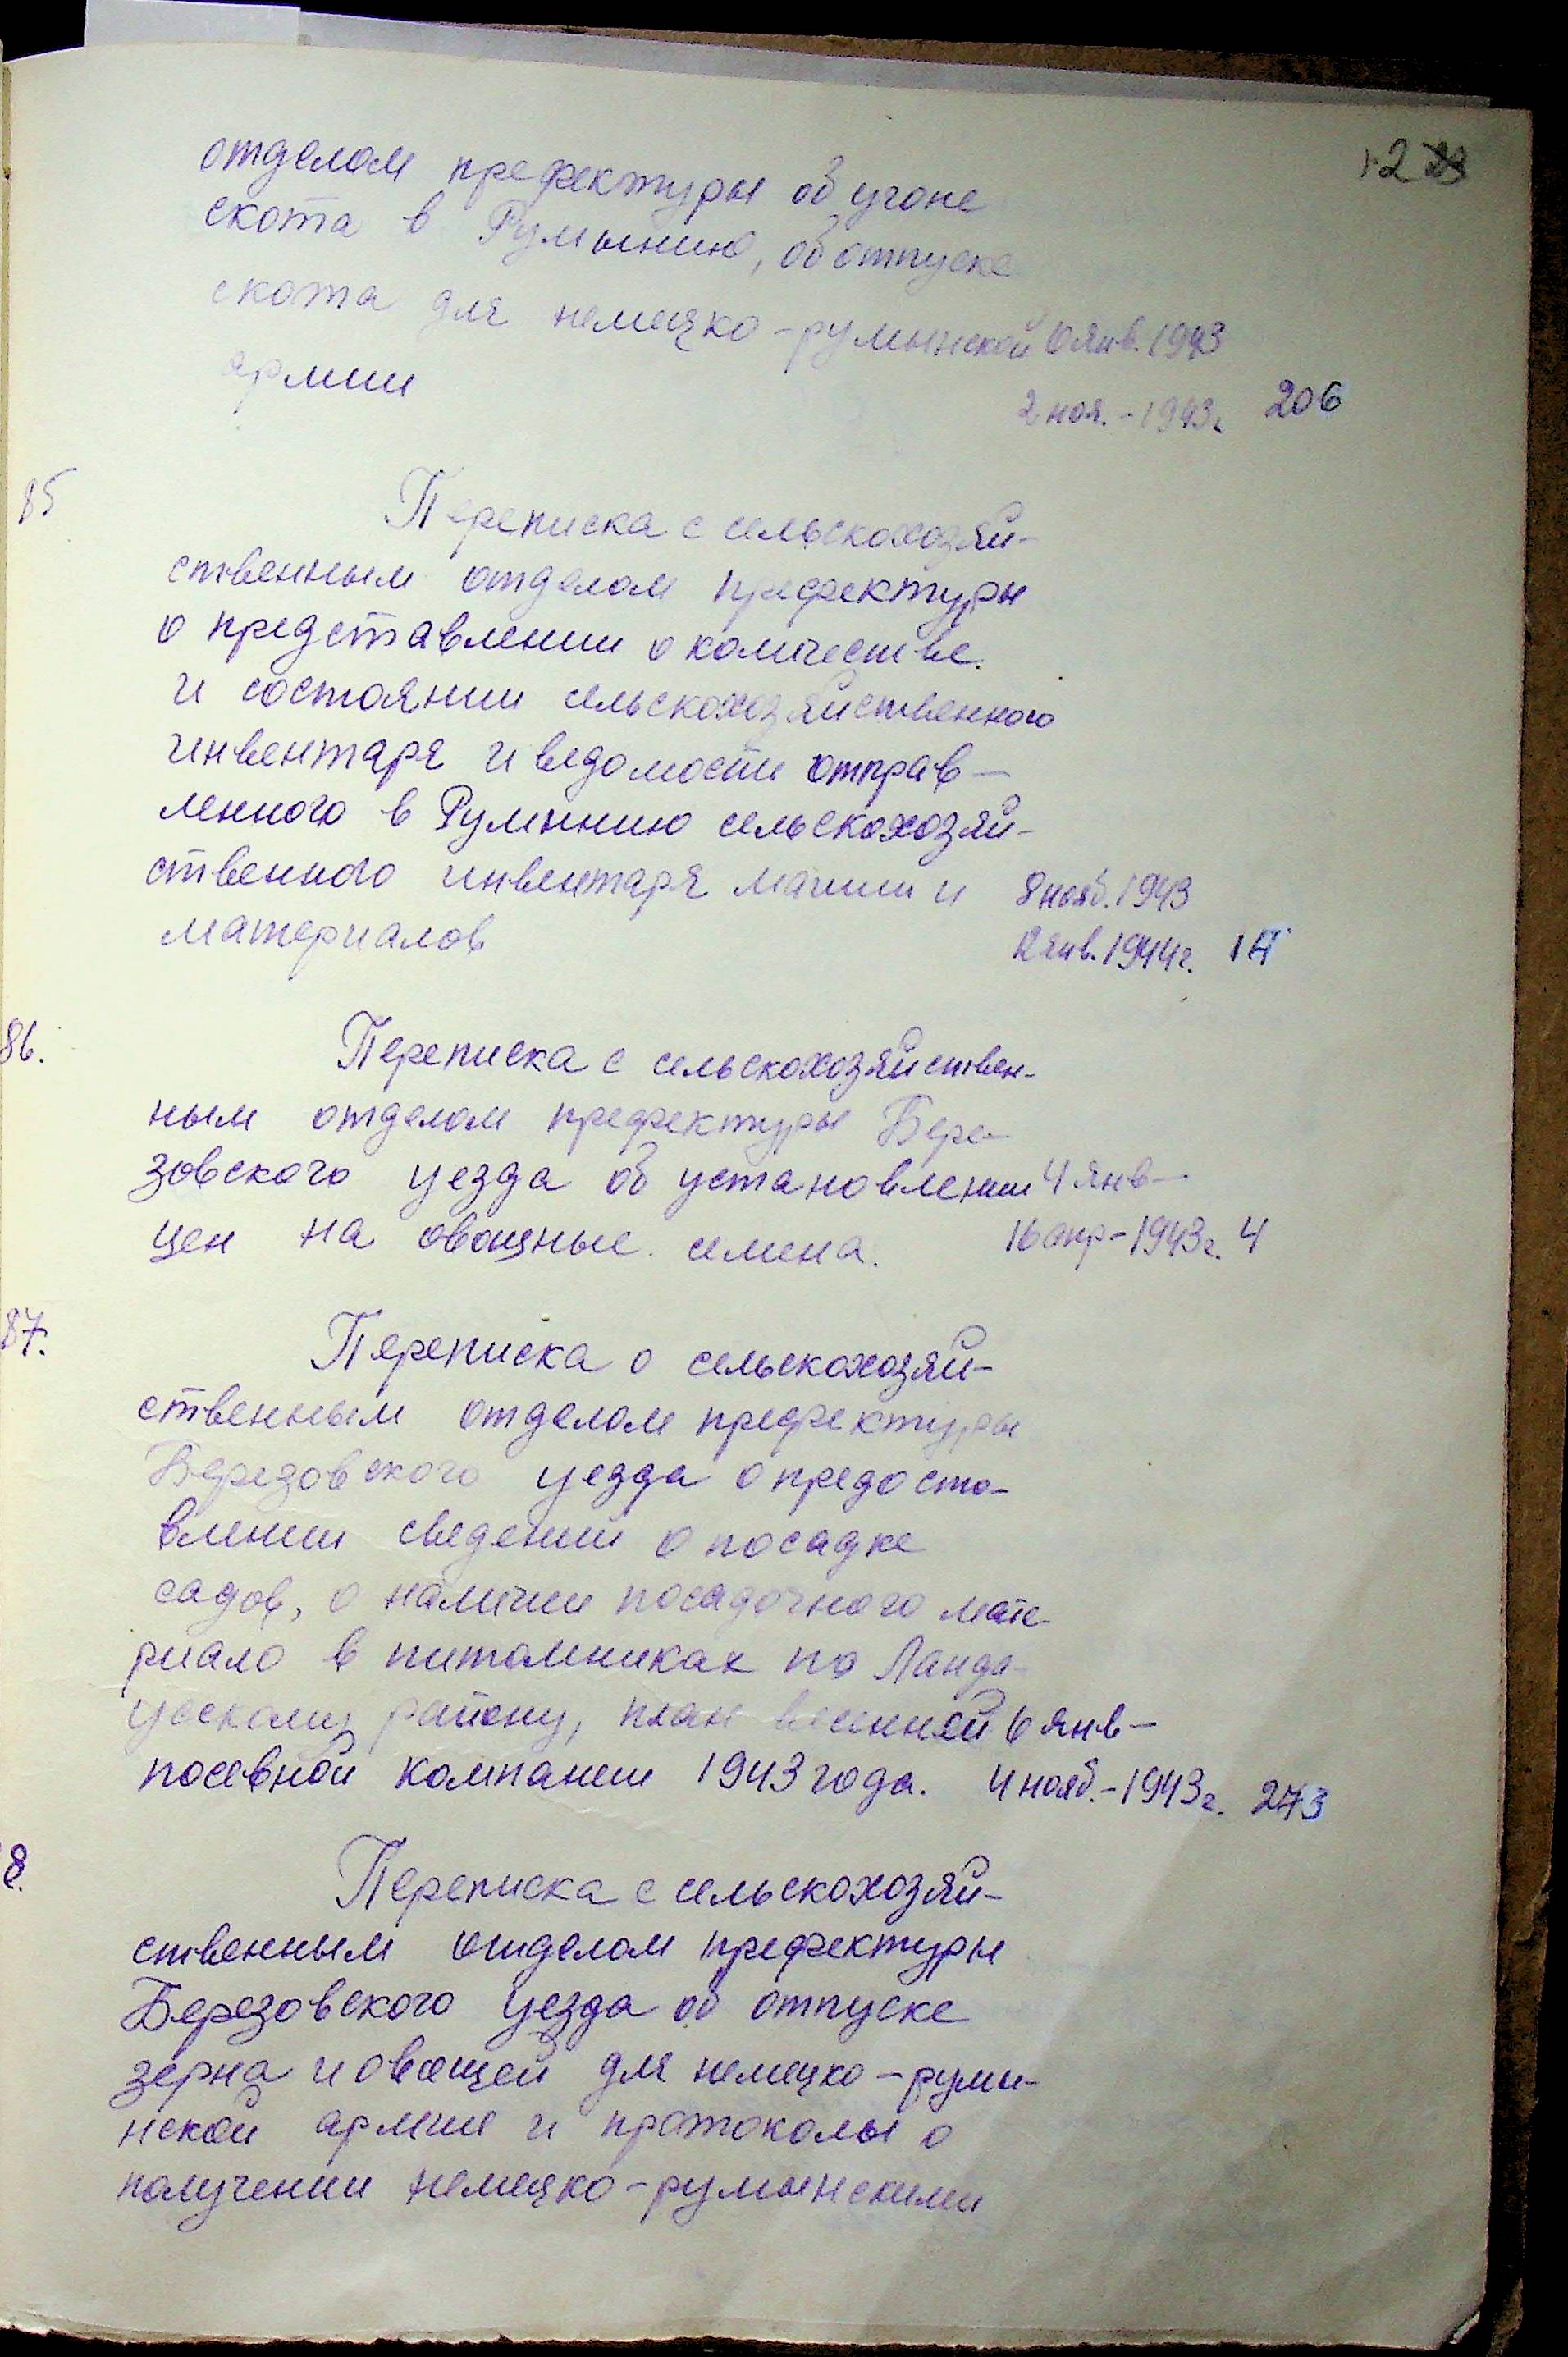 12
отделом префектуры об угоне
скота в Румынию, об отпуске
скота для немецко-румынской 6 янв. 1943
армии
2 ноя. - 1943г. 206
85
Переписка с сельскохозяй-
ственным отделом префектуры
о представлении о количестве
и состоянии сельскохозяйственного
инвентаря и ведомости отправ-
ленного в Румынию сельскохозяй-
ственного инвентаря машин и 8 нояб. 1943
материалов 12 янв. 1944г.
86.
Переписка с сельскохозяйствен-
ным отделом префектуры Бере-
зовского уезда об установлении 4 янв-
цен на овощные семена. 16 апр-1943г. 4
87.
Переписка о сельскохозяй-
ственным отделом префектуры
Березовского уезда о предоста-
влении сведений о посадке
садов, о наличии посадочного мате-
риало в питомниках по Ланда-
ускому району, план весенней 6 янв-
посевной компании 1943 года. 4 нояб.-1943г. 273
8.
Переписка с сельскохозяй-
ственным отделом префектуры
Березовского уезда об отпуске
зерна и овощей для немецко-румы-
нской армии и протоколы о
получении немецко-румынскими